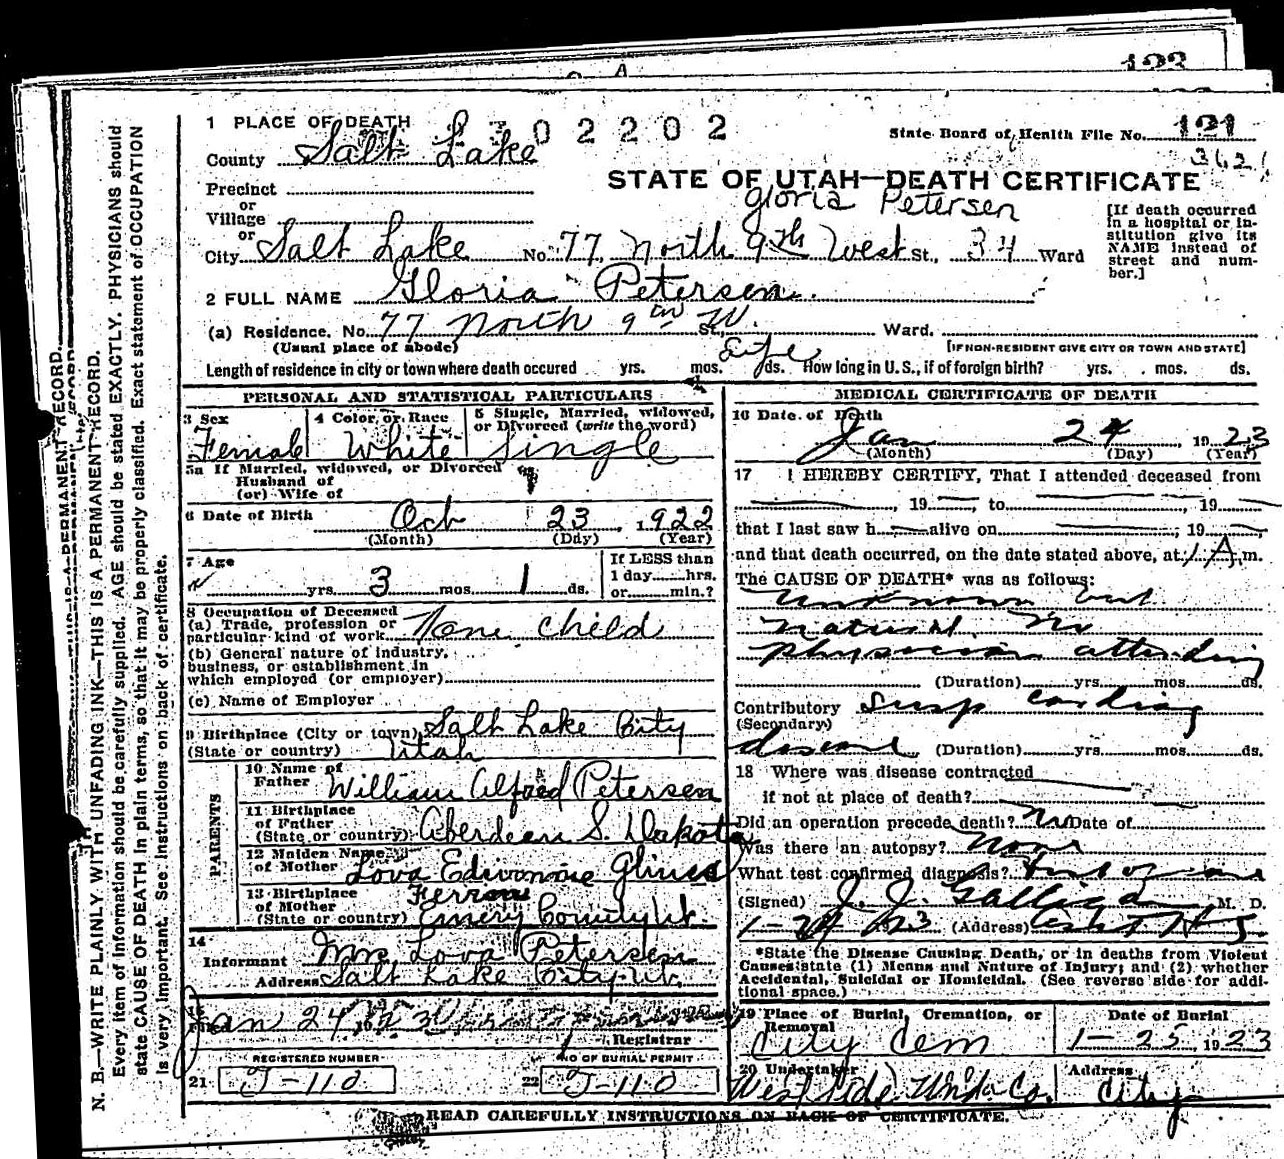 123
1 PLACE OF DEATH
302202
State Board of Health File No. 121
County Salt Lake
Precinct
STATE OF UTAH—DEATH CERTIFICATE
or
Village
Gloria Petersen
or
City Salt Lake No. 77 North 9th West St., 34 Ward
[If death occurred
in a hospital or in-
stitution give its
NAME instead of
street and num-
ber.]
2 FULL NAME Gloria Petersen.
(a) Residence. No. 77 North 9th W. St., Ward.
(Usual place of abode)
[IF NON-RESIDENT GIVE CITY OR TOWN AND STATE]
Life
Length of residence in city or town where death occured yrs. mos. ds. How long in U. S., if of foreign birth? yrs. mos. ds.
PERSONAL AND STATISTICAL PARTICULARS
3 Sex
Female
4 Color or Race
White
5 Single, Married, widowed,
or Divorced (write the word)
Single
5a If Married, widowed, or Divorced
Husband of
(or) Wife of
6 Date of Birth Oct 23, 1922
(Month) (Day) (Year)
7 Age
yrs. 3 mos. 1 ds.
If LESS than
1 day hrs.
or min.?
8 Occupation of Deceased
(a) Trade, profession or
particular kind of work None Child
(b) General nature of industry,
business, or establishment in
which employed (or employer)
(c) Name of Employer
9 Birthplace (City or town) Salt Lake City
(State or country) Utah
PARENTS
10 Name of
Father William Alfred Petersen
11 Birthplace
of Father
(State or country) Aberdeen S. Dakota
12 Maiden Name
of Mother Lova
13 Birthplace Ferron
of Mother
(State or country) Emery County Ut.
14
Informant Mrs. Lova Petersen
Address Salt Lake City Ut.
15
Filed Jan 24, 1923
Registrar
REGISTERED NUMBER
21 J-110
NO OF BURIAL PERMIT
22 J-110
MEDICAL CERTIFICATE OF DEATH
16 Date of Death
Jan 24, 1923
(Month) (Day) (Year)
17 I HEREBY CERTIFY, That I attended deceased from
, 19 , to , 19
that I last saw h alive on , 19
and that death occurred, on the date stated above, at 1 A.m.
The CAUSE OF DEATH* was as follows:
Unknown but
natural. No
physician attending
(Duration) yrs. mos. ds.
Contributory Susp cardiac
(Secondary)
disease (Duration) yrs. mos. ds.
18 Where was disease contracted
if not at place of death?
Did an operation precede death? No Date of
Was there an autopsy? None
What test confirmed diagnosis?
(Signed) J. J. Galligan M. D.
1-24 1923 (Address)
*State the Disease Causing Death, or in deaths from Violent
Causes state (1) Means and Nature of Injury; and (2) whether
Accidental, Suicidal or Homicidal. (See reverse side for addi-
tional space.)
19 Place of Burial, Cremation, or
Removal
City Cem
Date of Burial
1-25, 1923
20 Undertaker
West Side Und. Co.
Address
City
READ CAREFULLY INSTRUCTIONS ON BACK OF CERTIFICATE.
N. B.—WRITE PLAINLY WITH UNFADING INK—THIS IS A PERMANENT RECORD.
Every item of information should be carefully supplied. AGE should be stated EXACTLY. PHYSICIANS should
state CAUSE OF DEATH in plain terms, so that it may be properly classified. Exact statement of OCCUPATION
is very important. See Instructions on back of certificate.